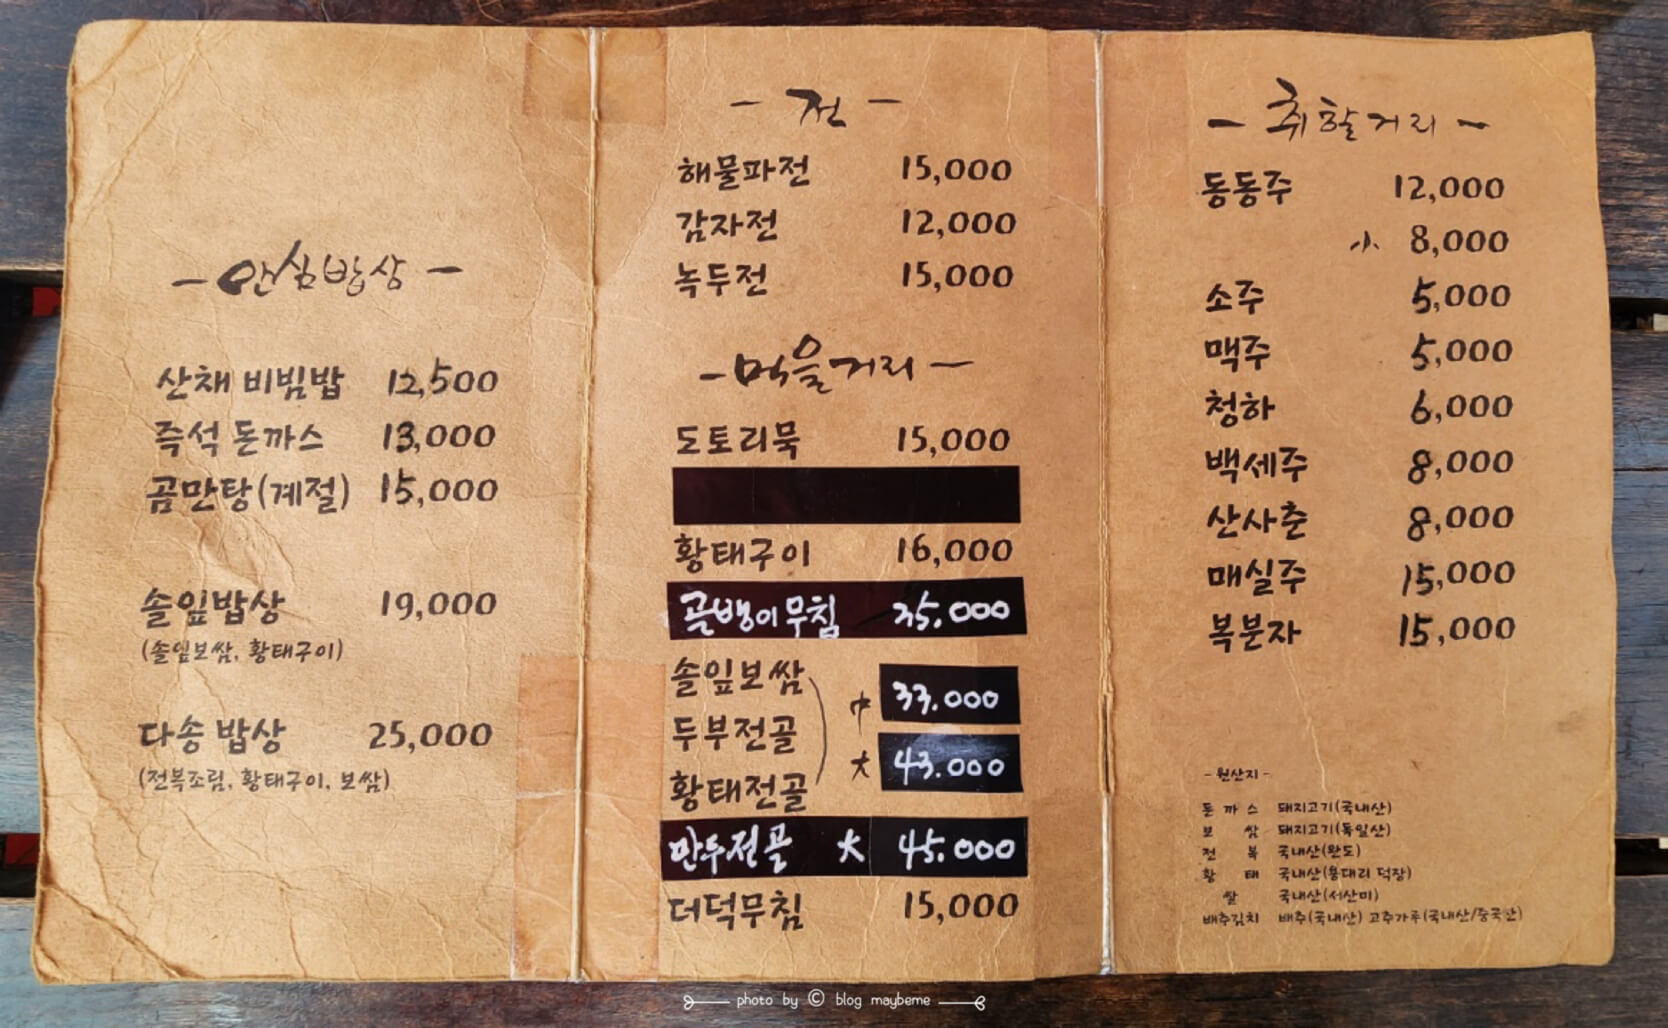 - 안심밥상 -
산채 비빔밥 12,500
즉석 돈까스 13,000
곰만탕(계절) 15,000
솔잎밥상 19,000
(솔잎보쌈, 황태구이)
다송 밥상 25,000
(전복조림, 황태구이, 보쌈)
- 전 -
해물파전 15,000
감자전 12,000
녹두전 15,000
- 먹을거리 -
도토리묵 15,000
황태구이 16,000
골뱅이무침 35.000
솔잎보쌈
中 33.000
두부전골
大 43.000
황태전골
만두전골 大 45.000
더덕무침 15,000
- 취할거리 -
동동주 12,000
小 8,000
소주 5,000
맥주 5,000
청하 6,000
백세주 8,000
산사춘 8,000
매실주 15,000
복분자 15,000
- 원산지 -
돈까스 돼지고기(국내산)
보쌈 돼지고기(독일산)
전복 국내산(완도)
황태 국내산(용대리 덕장)
쌀 국내산(서산미)
배추김치 배추(국내산) 고추가루(국내산/중국산)
photo by © blog maybeme